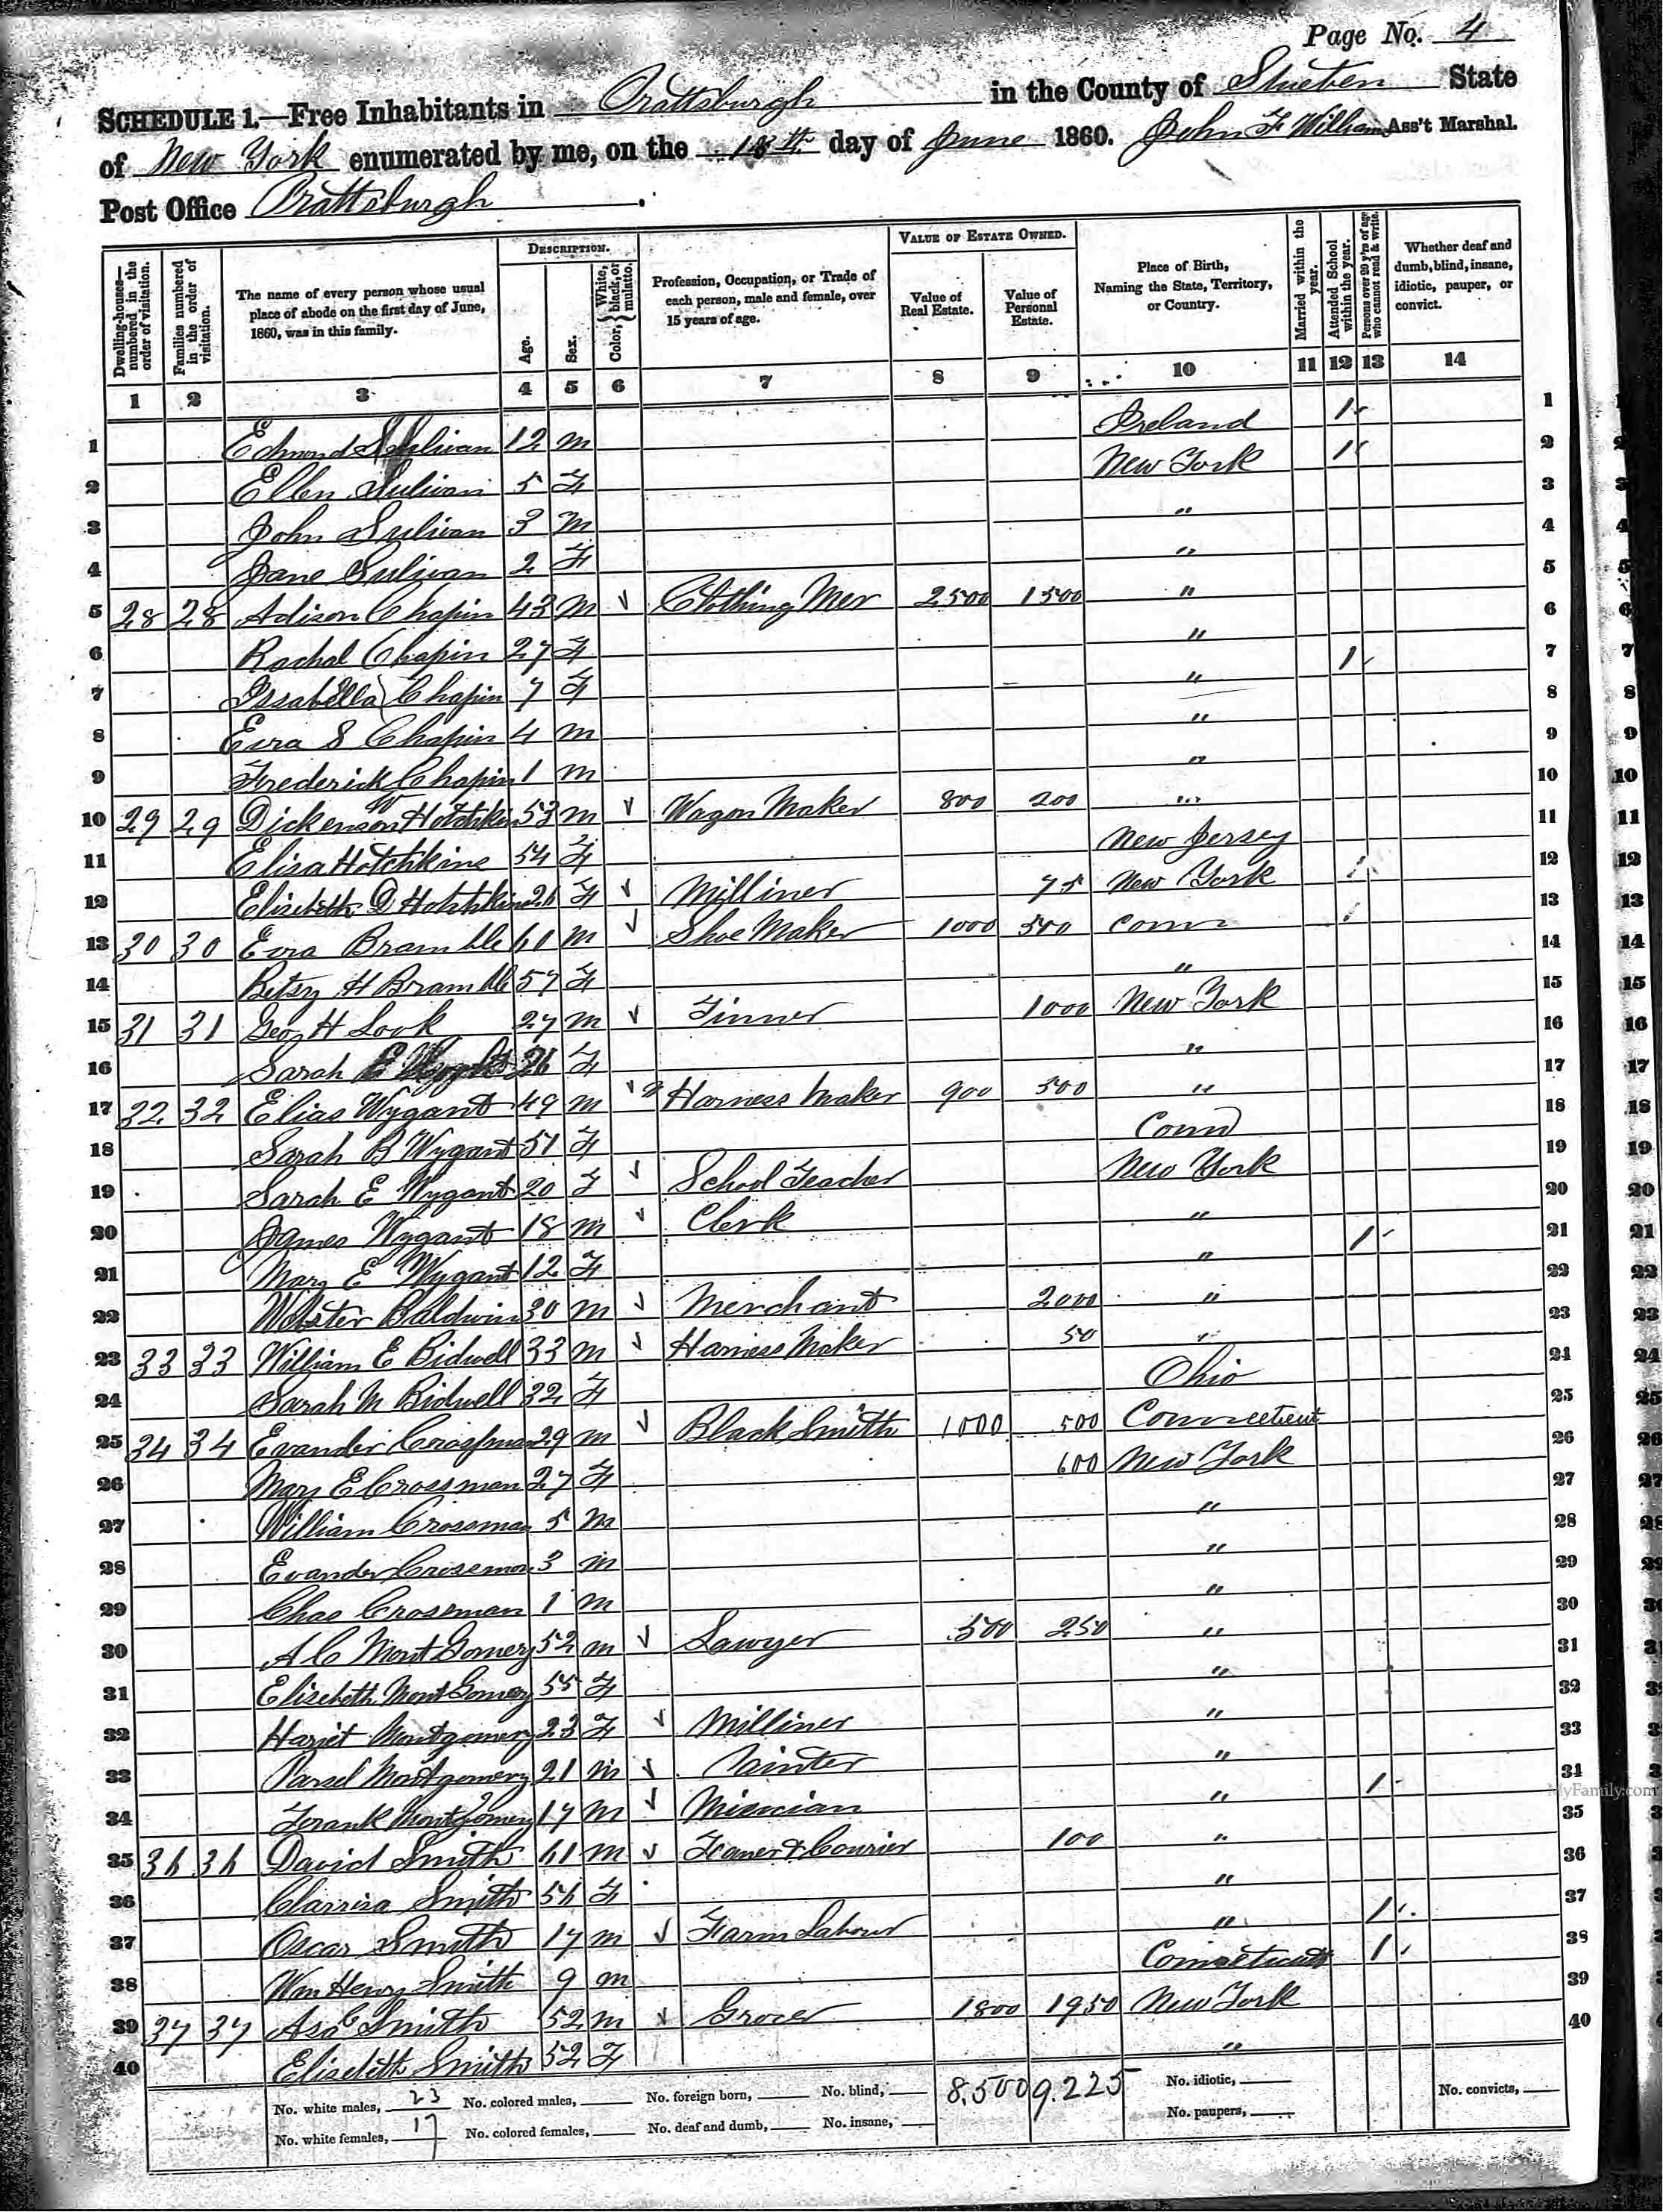 Page No. 4
SCHEDULE 1.—Free Inhabitants in Prattsburgh in the County of Stueben State
of New York enumerated by me, on the 18th day of June 1860. John F Williams Ass't Marshal.
Post Office Prattsburgh.
Dwelling-houses—numbered in the order of visitation. Families numbered in the order of visitation. The name of every person whose usual place of abode on the first day of June, 1860, was in this family. DESCRIPTION. Age. Sex. Color, {White, black, or mulatto. Profession, Occupation, or Trade of each person, male and female, over 15 years of age. VALUE OF ESTATE OWNED. Value of Real Estate. Value of Personal Estate. Place of Birth, Naming the State, Territory, or Country. Married within the year. Attended School within the year. Persons over 20 y'rs of age who cannot read & write. Whether deaf and dumb, blind, insane, idiotic, pauper, or convict.
1 2 3 4 5 6 7 8 9 10 11 12 13 14
1 Edmond Sulivan 12 m Ireland 1 1
2 Ellen Sulivan 5 F New York 1 2
3 John Sulivan 3 m " 3
4 Jane Sulivan 2 F " 4
5 28 28 Adison Chapin 43 m Clothing Mer 2500 1500 " 5
6 Rachal Chapin 27 F " 6
7 Issabella Chapin 7 F " 1 7
8 Ezra S Chapin 4 m " 8
9 Frederick Chapin 1 m " 9
10 29 29 Dickenson W Hotchkin 53 m Wagon Maker 800 200 " 10
11 Elisa Hotchkins 54 F New Jersey 11
12 Elizebeth D Hotchkins 26 F Milliner 75 New York 1 12
13 30 30 Ezra Bramble 60 m Shoe Maker 1000 500 Conn 1 13
14 Betsy H Bramble 57 F " 14
15 31 31 Geo H Look 27 m Tinner 1000 New York 15
16 Sarah E 26 F " 16
17 32 32 Elias Wygant 49 m Harness Maker 900 500 " 17
18 Sarah B Wygant 51 F Conn 18
19 Sarah E Wygant 20 F School Teacher New York 19
20 James Wygant 18 m Clerk " 20
21 Mary E Wygant 12 F " 1 21
22 Webster Baldwin 30 m Merchant 2000 " 22
23 33 33 William E Bidwell 33 m Harness Maker 50 " 23
24 Sarah M Bidwell 32 F Ohio 24
25 34 34 Evander Crossman 29 m Black Smith 1000 500 Connecticut 25
26 Mary E Crossman 27 F 600 New York 26
27 William Crossman 5 m " 27
28 Evander Crossman 3 m " 28
29 Chas Crossman 1 m " 29
30 A C MontGomery 52 m Lawyer 500 250 " 30
31 Elisebeth MontGomery 55 F " 31
32 Hariet Montgomery 23 F Milliner " 32
33 Parsel Montgomery 21 m " 33
34 Frank Montgomery 17 m Misician " 1 34
35 36 36 David Smith 61 m Taner & Courier 100 " 35
36 Clarrisa Smith 56 F " 36
37 Oscar Smith 17 m Farm Labour " 1 37
38 Wm Henry Smith 9 m Conneticutt 1 38
39 37 37 Asa C Smith 52 m Grocer 1800 1950 New York 39
40 Elisebeth Smith 52 F " 40
No. white males, 23 No. colored males, No. foreign born, No. blind, 8,500 9.225 No. idiotic, No. convicts,
No. white females, 17 No. colored females, No. deaf and dumb, No. insane, No. paupers,
MyFamily.com